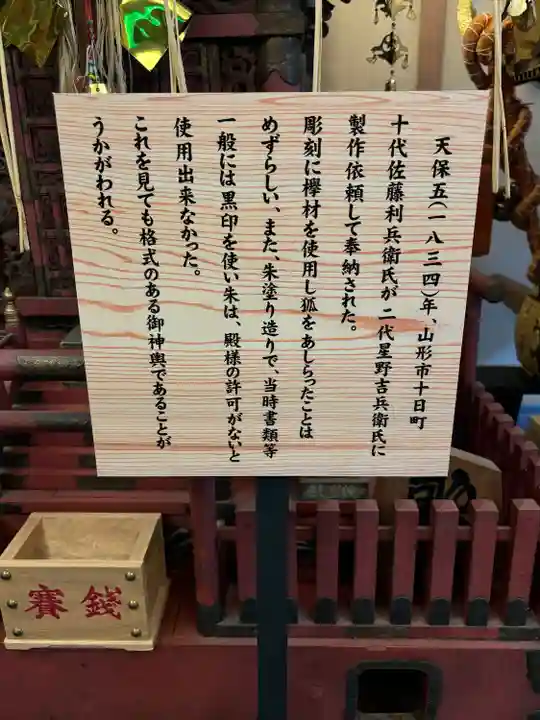 天保五(一八三四)年、山形市十日町
十代佐藤利兵衛氏が 二代星野吉兵衛氏に
製作依頼して奉納された。
彫刻に欅材を使用し狐をあしらったことは
めずらしい、また、朱塗り造りで、当時書類等
一般には黒印を使い朱は、殿様の許可がないと
使用出来なかった。
これを見ても格式のある御神輿であることが
うかがわれる。
賽銭